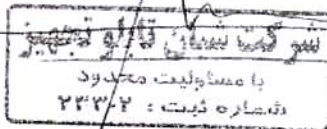 شرکت شبان تابلو تجهیز
با مسئولیت محدود
شماره ثبت : ۲۳۳۰۲